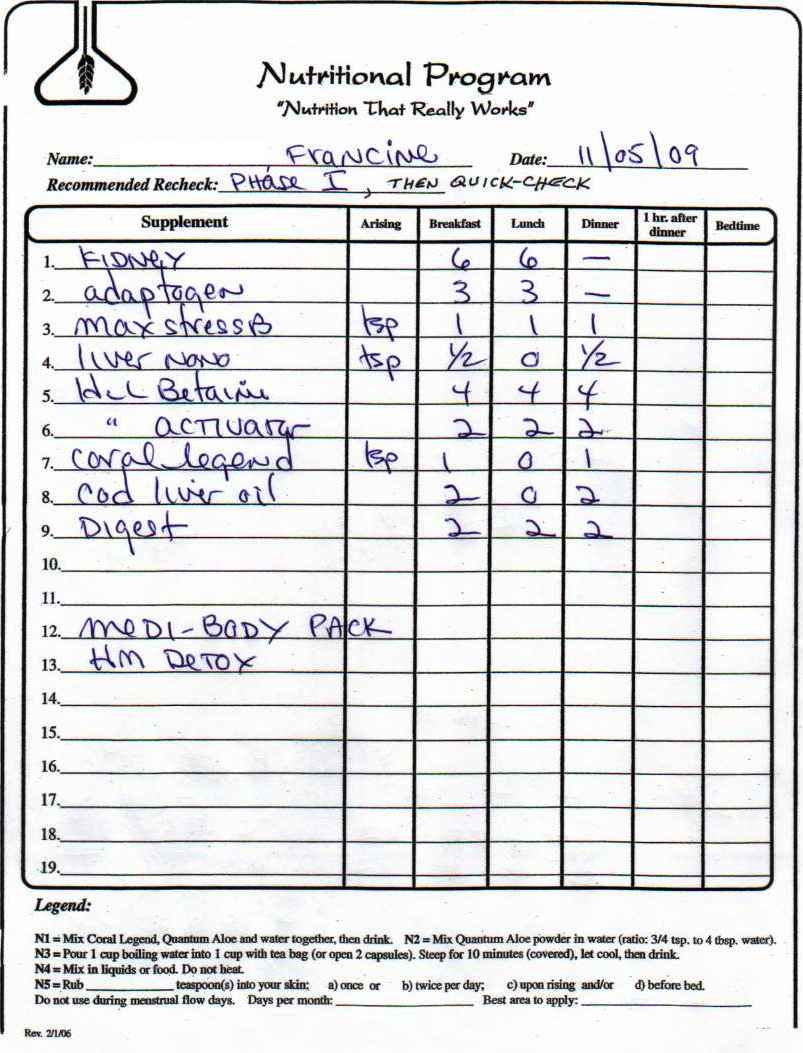 Nutritional Program
"Nutrition That Really Works"
Name: Francine Date: 11/05/09
Recommended Recheck: Phase I, THEN QUICK-CHECK
Supplement Arising Breakfast Lunch Dinner 1 hr. after dinner Bedtime
1. KIDNEY 6 6 —
2. adaptogen 3 3 —
3. max stress B tsp 1 1 1
4. liver NANO tsp 1/2 0 1/2
5. HCL Betaine 4 4 4
6. " ACTIVATOR 2 2 2
7. coral legend tsp 1 0 1
8. Cod liver oil 2 0 2
9. Digest 2 2 2
10.
11.
12. MEDI-BODY PACK
13. HM DETOX
14.
15.
16.
17.
18.
19.
Legend:
N1 = Mix Coral Legend, Quantum Aloe and water together, then drink. N2 = Mix Quantum Aloe powder in water (ratio: 3/4 tsp. to 4 tbsp. water).
N3 = Pour 1 cup boiling water into 1 cup with tea bag (or open 2 capsules). Steep for 10 minutes (covered), let cool, then drink.
N4 = Mix in liquids or food. Do not heat.
N5 = Rub ____________ teaspoon(s) into your skin: a) once or b) twice per day; c) upon rising and/or d) before bed.
Do not use during menstrual flow days. Days per month: ____________ Best area to apply: ____________
Rev. 2/1/06